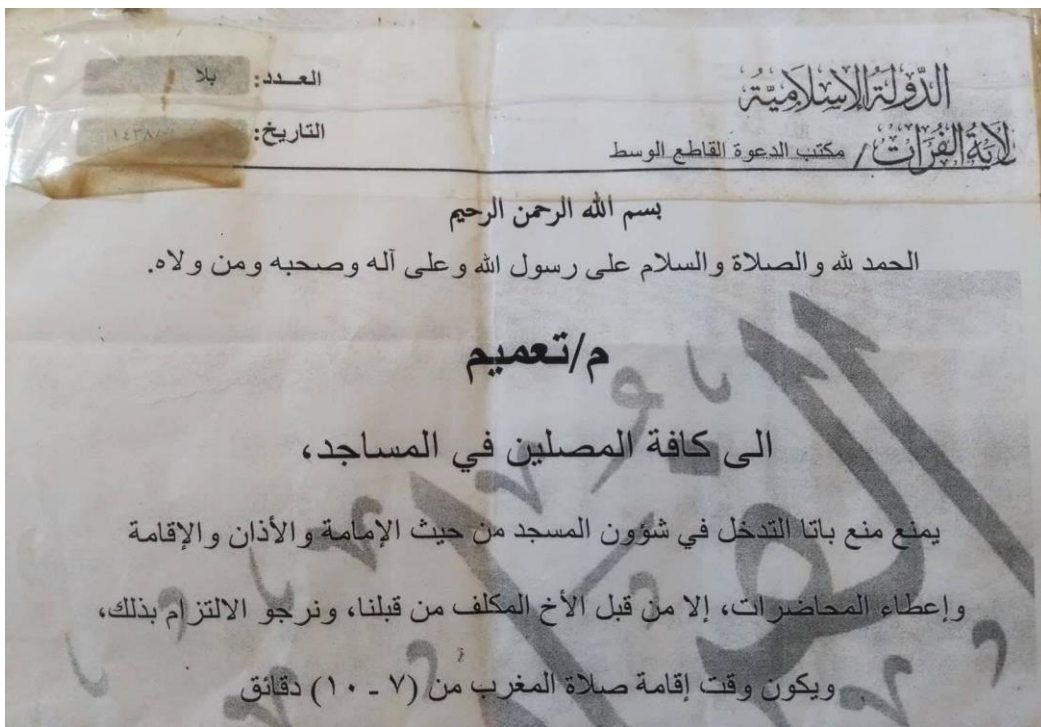 الدولة الإسلامية
ولاية الفرات / مكتب الدعوة القاطع الوسط
العـدد: بلا
التاريخ: /١٤٣٨
بسم الله الرحمن الرحيم
الحمد لله والصلاة والسلام على رسول الله وعلى آله وصحبه ومن ولاه.
م/تعميم
الى كافة المصلين في المساجد،
يمنع منع باتا التدخل في شؤون المسجد من حيث الإمامة والأذان والإقامة
وإعطاء المحاضرات، إلا من قبل الأخ المكلف من قبلنا، ونرجو الالتزام بذلك،
ويكون وقت إقامة صلاة المغرب من (٧ - ١٠) دقائق